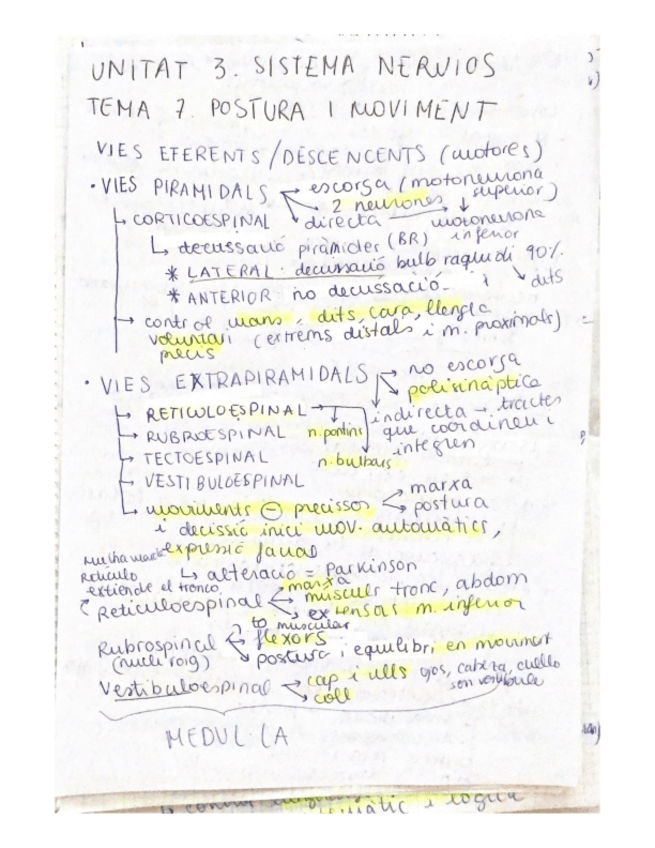 UNITAT 3. SISTEMA NERVIOS
TEMA 7. POSTURA I MOVIMENT
VIES EFERENTS/DESCENCENTS (motores)
· VIES PIRAMIDALS → escorça (motoneurona superior)
→ 2 neurones
→ directa → motoneurona inferior
↳ CORTICOESPINAL
↳ decussació piràmides (BR)
* LATERAL: decussació bulb raquidi 90%
* ANTERIOR no decussació. ↘ dits
→ control mans, dits, cara, llengla
voluntari (extrems distals i m. proximals)
precís
· VIES EXTRAPIRAMIDALS → no escorça
→ polisinàptica
→ RETICULOESPINAL → indirecta → tractes
→ RUBROESPINAL n. pontins que coordinen i
→ TECTOESPINAL n. bulbars integren
→ VESTIBULOESPINAL
↳ moviments ⊖ precissos → marxa
→ postura
i decissió inici mov. automàtics,
expressió facial
↳ alteració = Parkinson
Reticulo
extiende el tronco
Reticuloespinal → marxa
→ músculs tronc, abdom
→ extensors m. inferior
Rubrospinal → to muscular
(nucli roig) flexors
→ postura i equilibri en moviment
Vestibuloespinal → cap i ulls ojos, cabeza, cuello
→ coll son
MEDUL·LA